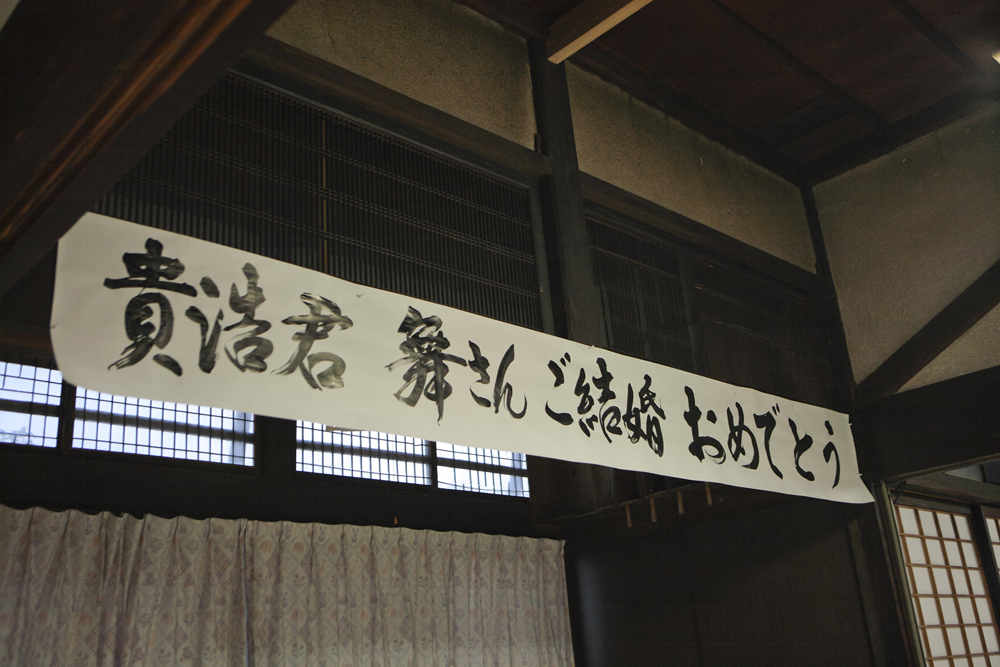 貴浩君 舞さん ご結婚 おめでとう